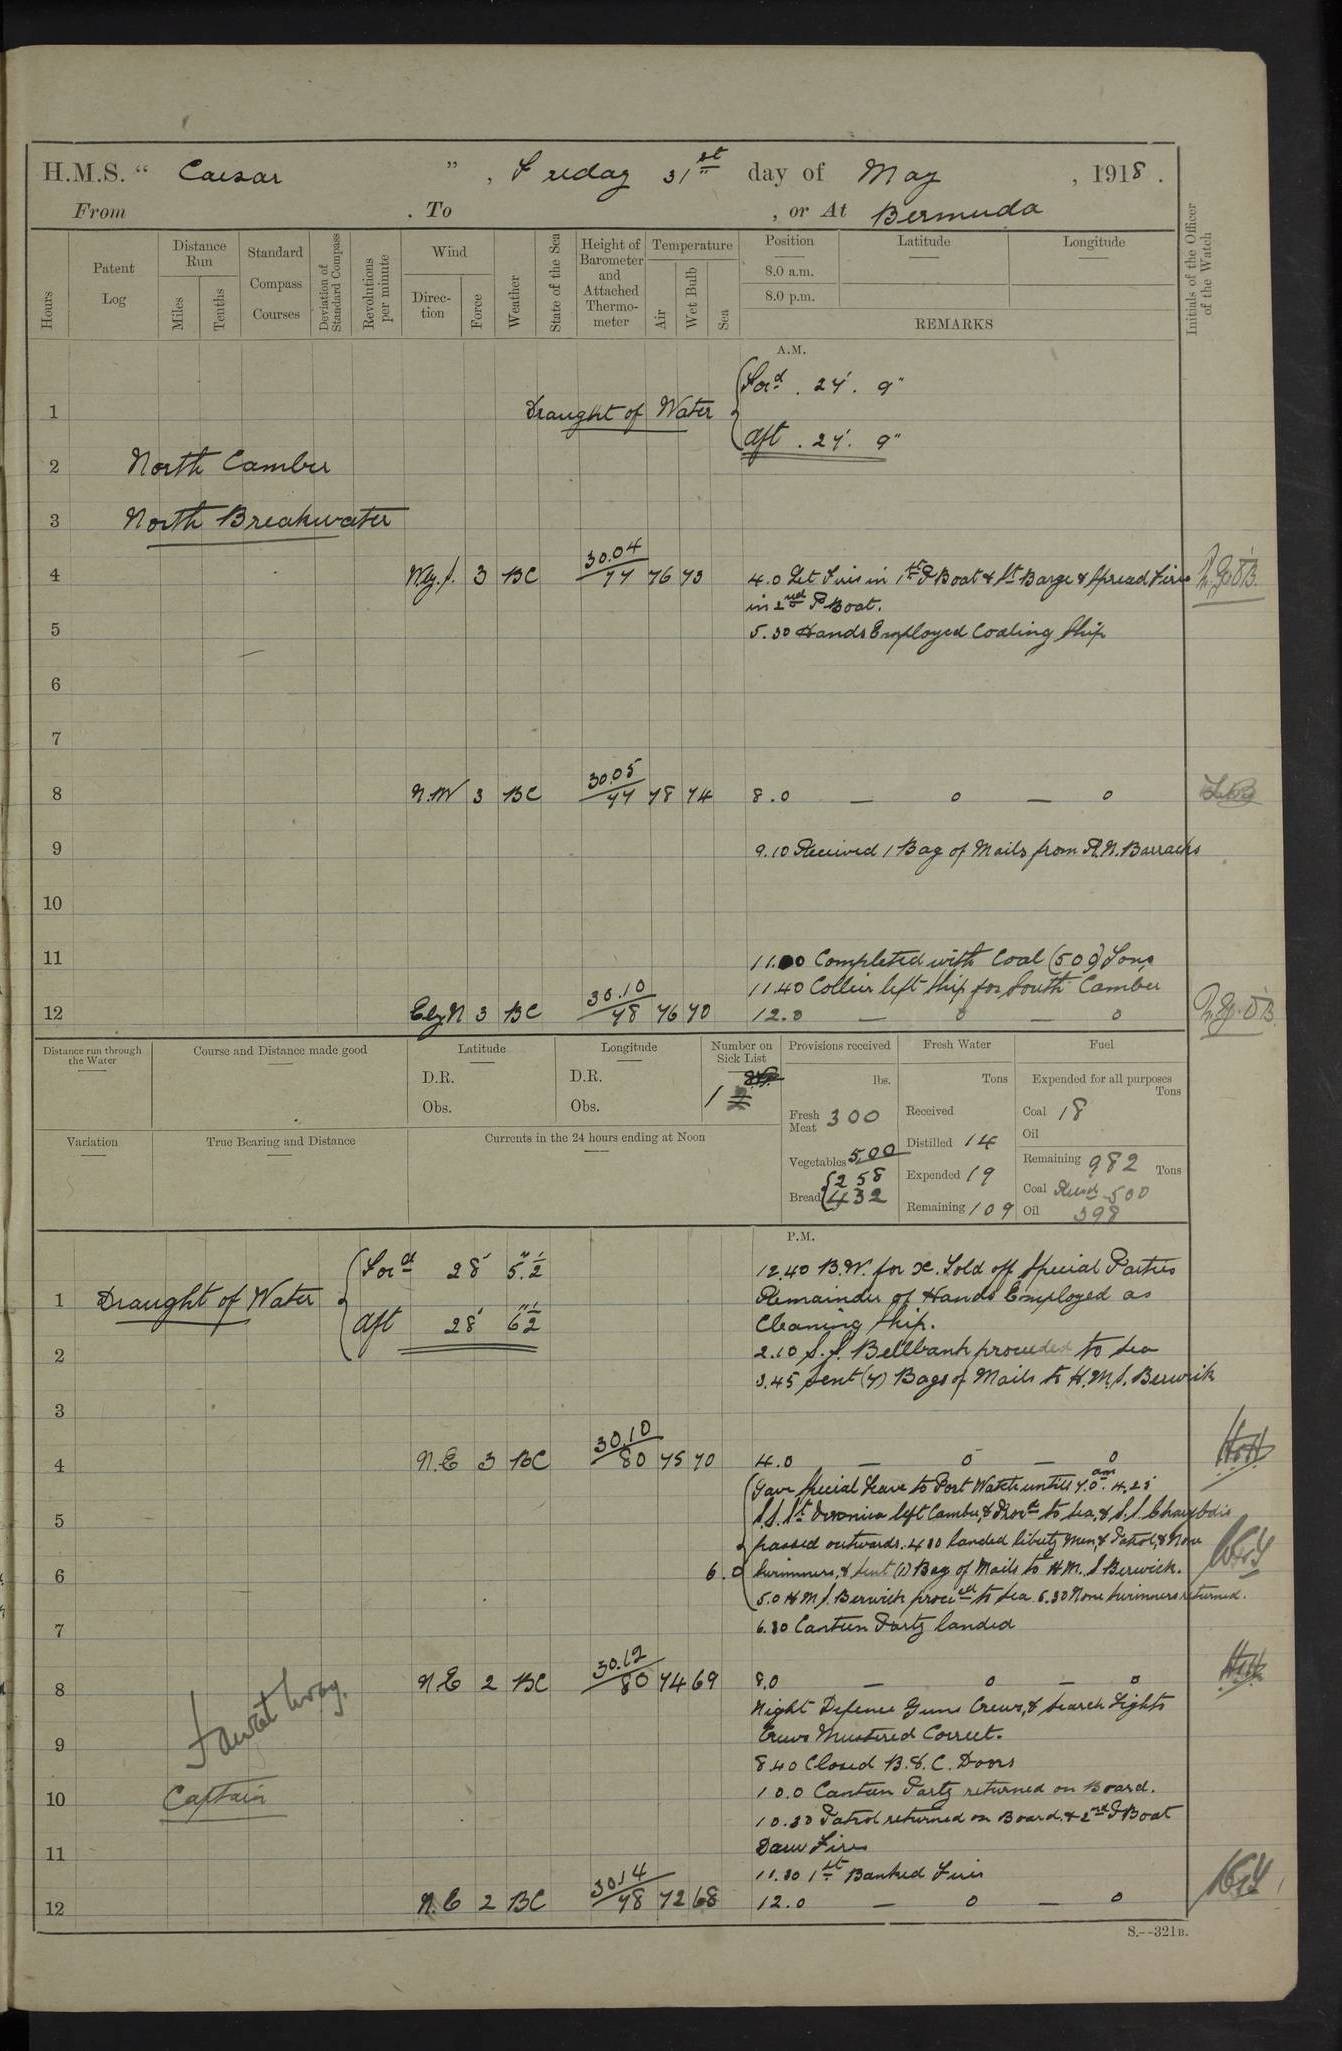 H.M.S. “ Caesar ” , Friday 31st day of May , 1918 .
From . To , or At Bermuda
Hours
Patent Log
Distance Run
Miles
Tenths
Standard Compass Courses
Deviation of Standard Compass
Revolutions per minute
Wind
Direc-tion
Force
Weather
State of the Sea
Height of Barometer and Attached Thermo-meter
Temperature
Air
Wet Bulb
Sea
Position
8.0 a.m.
8.0 p.m.
Latitude
Longitude
REMARKS
Initials of the Officer of the Watch
A.M.
Ford . 27'. 9"
1 Draught of Water
Aft . 27'. 9"
2 North Camber
3 North Breakwater
4 Wly.S. 3 BC 30.04 77 76 73 4.0 Let Fires in 1st P Boat & St Barge & Spread Fires
in 2nd P Boat.
5 5.30 Hands Employed Coaling Ship
6
7
8 N.W 3 BC 30.05 77 78 74 8.0 — 0 — 0
9 9.10 Received 1 Bag of Mails from R.N. Barracks
10
11 11.00 Completed with Coal (509) Tons
11.40 Collier left ship for South Camber
12 EbyN 3 BC 30.10 78 76 70 12.0 — 0 — 0
Distance run through the Water
Course and Distance made good
Latitude
D.R.
Obs.
Longitude
D.R.
Obs.
Number on Sick List
1
Provisions received
lbs.
Fresh Meat 300
Vegetables 500
258
Bread 432
Fresh Water
Tons
Received
Distilled 14
Expended 19
Remaining 109
Fuel
Expended for all purposes
Tons
Coal 18
Oil
Remaining 982 Tons
Coal Recd 500
Oil 398
Variation
True Bearing and Distance
Currents in the 24 hours ending at Noon
P.M.
Ford 28' 5"½
12.40 B.W. for x. Told off Special Parties
1 Draught of Water Remainder of Hands Employed as
Aft 28' 6"½ Cleaning Ship.
2 2.10 S.S. Bellbank proceeded to sea
3.45 Sent (7) Bags of Mails to H.M.S. Berwick
3
4 N.E 3 BC 30.10 80 75 70 4.0 — 0 — 0
Gave Special Leave to Port Watch until 7.0 am. 4.25
5 S.S. St Veronica left Camber, & Procd to sea, & S.S. Charybdis
passed outwards. 4.30 landed liberty men, & Patrol, & Non
6 6.0 Swimmers, & sent (1) Bag of Mails to H.M.S Berwick.
5.0 H M S. Berwick proceed to sea 6.30 None Swimmers returned.
7 6.30 Canteen Party landed
8 N.E 2 BC 30.12 80 74 69 8.0 — 0 — 0
Night Defence Guns Crews, & Search Lights
9 Crews Mustered Correct.
8.40 Closed B.&.C. Doors
10 Captain 10.0 Canteen Party returned on Board.
10.30 Patrol returned on Board. & 2nd P Boat
11 Draw Fires
11.30 1st Banked Fires
12 N.E 2 BC 30.14 78 72 68 12.0 — 0 — 0
S.--321B.